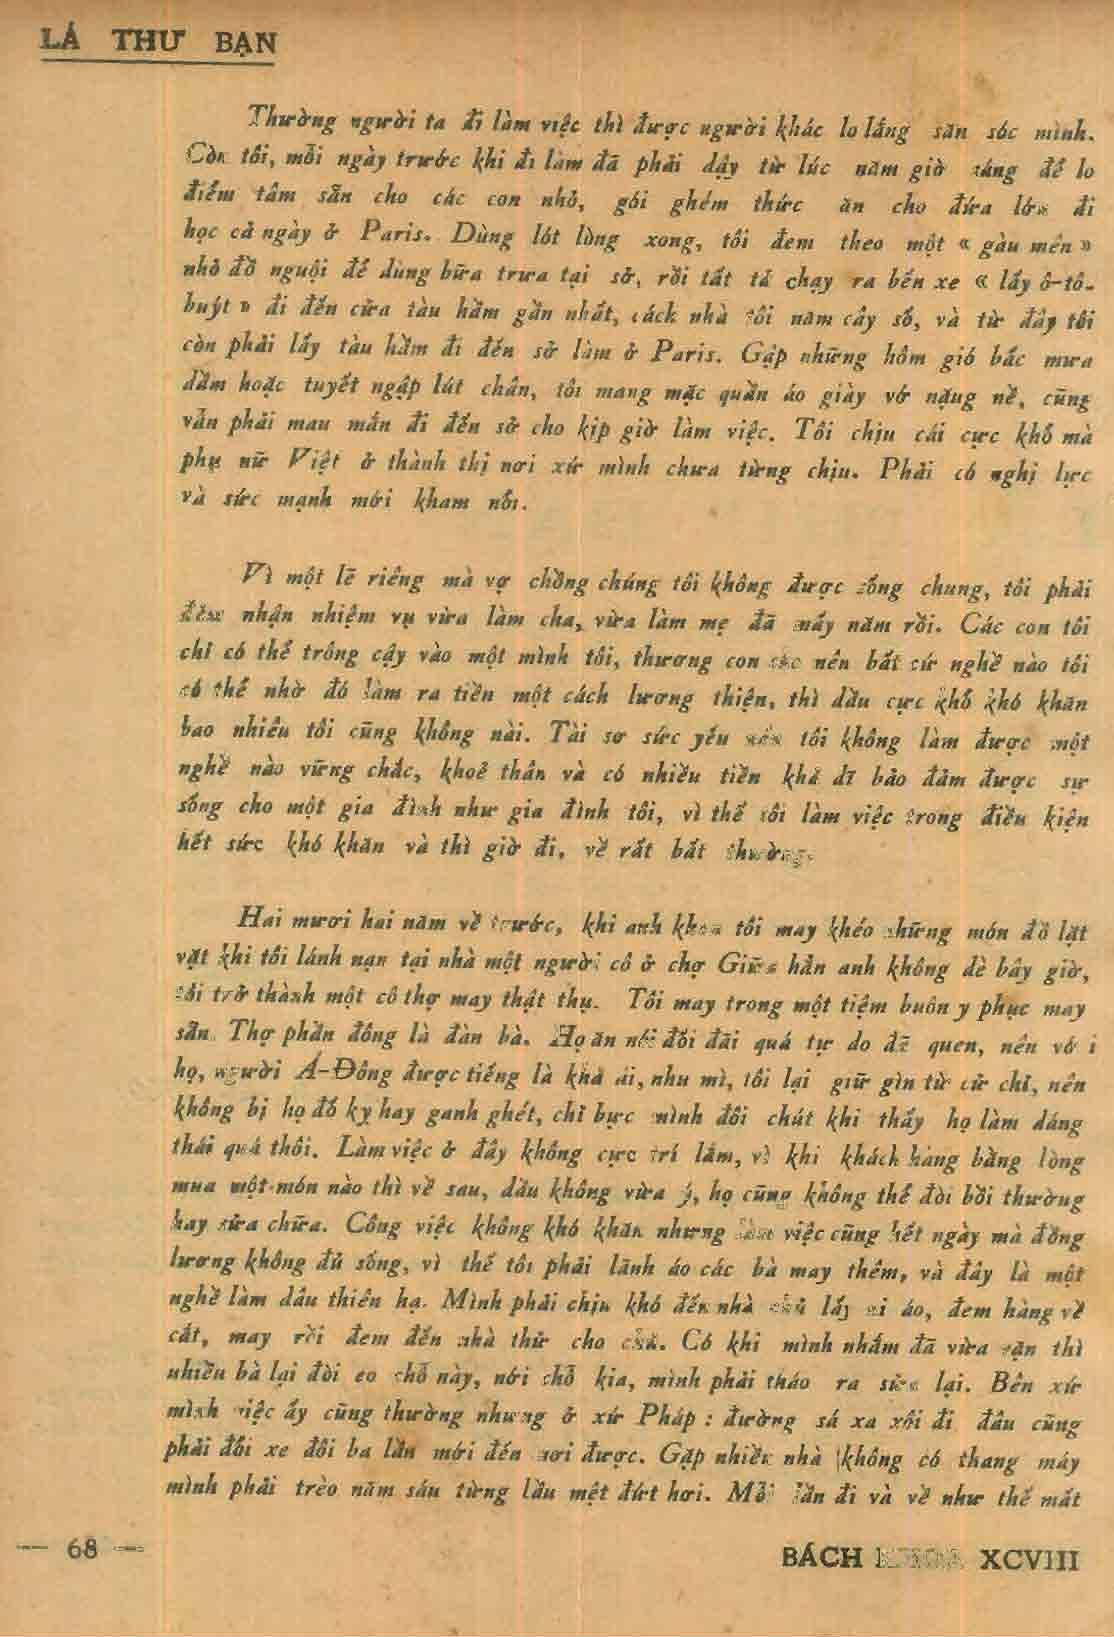 LÁ THƯ BẠN
Thường người ta đi làm việc thì được người khác lo lắng săn sóc mình.
Còn tôi, mỗi ngày trước khi đi làm đã phải dậy từ lúc năm giờ sáng để lo
điểm tâm sẵn cho các con nhỏ, gói ghém thức ăn cho đứa lớn đi
học cả ngày ở Paris. Dùng lót lòng xong, tôi đem theo một « gàu mên »
nhỏ đồ nguội để dùng bữa trưa tại sở, rồi tất tả chạy ra bến xe « lấy ô-tô-
buýt » đi đến cửa tàu hầm gần nhất, cách nhà tôi năm cây số, và từ đây tôi
còn phải lấy tàu hầm đi đến sở làm ở Paris. Gặp những hôm gió bấc mưa
dầm hoặc tuyết ngập lút chân, tôi mang mặc quần áo giày vớ nặng nề, cũng
vẫn phải mau mắn đi đến sở cho kịp giờ làm việc. Tôi chịu cái cực khổ mà
phụ nữ Việt ở thành thị nơi xứ mình chưa từng chịu. Phải có nghị lực
và sức mạnh mới kham nổi.
Vì một lẽ riêng mà vợ chồng chúng tôi không được sống chung, tôi phải
đảm nhận nhiệm vụ vừa làm cha, vừa làm mẹ đã mấy năm rồi. Các con tôi
chỉ có thể trông cậy vào một mình tôi, thương con cho nên bất cứ nghề nào tôi
có thể nhờ đó làm ra tiền một cách lương thiện, thì dầu cực khổ khó khăn
bao nhiêu tôi cũng không nài. Tài sơ sức yếu nên tôi không làm được một
nghề nào vững chắc, khoẻ thân và có nhiều tiền khả dĩ bảo đảm được sự
sống cho một gia đình như gia đình tôi, vì thế tôi làm việc trong điều kiện
hết sức khó khăn và thì giờ đi, về rất bất thường.
Hai mươi hai năm về trước, khi anh khen tôi may khéo những món đồ lặt
vặt khi tôi lánh nạn tại nhà một người cô ở chợ Giữa hẳn anh không dè bây giờ,
tôi trở thành một cô thợ may thật thụ. Tôi may trong một tiệm buôn y phục may
sẵn. Thợ phần đông là đàn bà. Họ ăn nói đối đãi quá tự do đã quen, nên vớ i
họ, người Á-Đông được tiếng là khả ái, nhu mì, tôi lại giữ gìn từ cử chỉ, nên
không bị họ đố kỵ hay ganh ghét, chỉ bực mình đôi chút khi thấy họ làm dáng
thái quá thôi. Làm việc ở đây không cực trí lắm, vì khi khách hàng bằng lòng
mua một món nào thì về sau, dầu không vừa ý, họ cũng không thể đòi bồi thường
hay sửa chữa. Công việc không khó khăn nhưng làm việc cũng hết ngày mà đồng
lương không đủ sống, vì thế tôi phải lãnh áo các bà may thêm, và đây là một
nghề làm dâu thiên hạ. Mình phải chịu khó đến nhà chủ lấy ni áo, đem hàng về
cắt, may rồi đem đến nhà thử cho chủ. Có khi mình nhắm đã vừa vặn thì
nhiều bà lại đòi eo chỗ này, nới chỗ kia, mình phải tháo ra sửa lại. Bên xứ
mình việc ấy cũng thường nhưng ở xứ Pháp : đường sá xa xôi đi đâu cũng
phải đổi xe đôi ba lần mới đến nơi được. Gặp nhiều nhà không có thang máy
mình phải trèo năm sáu từng lầu mệt đứt hơi. Mỗi lần đi và về như thế mất
— 68 —
BÁCH KHOA XCVIII